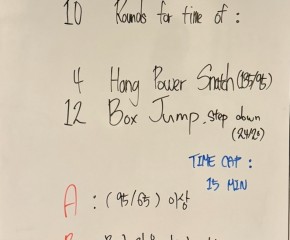 10 Rounds for time of :
4 Hang Power Snatch (135/95)
12 Box Jump. step down
(24/20)
TIME CAP :
15 MIN
A : (95/65) 이상
B